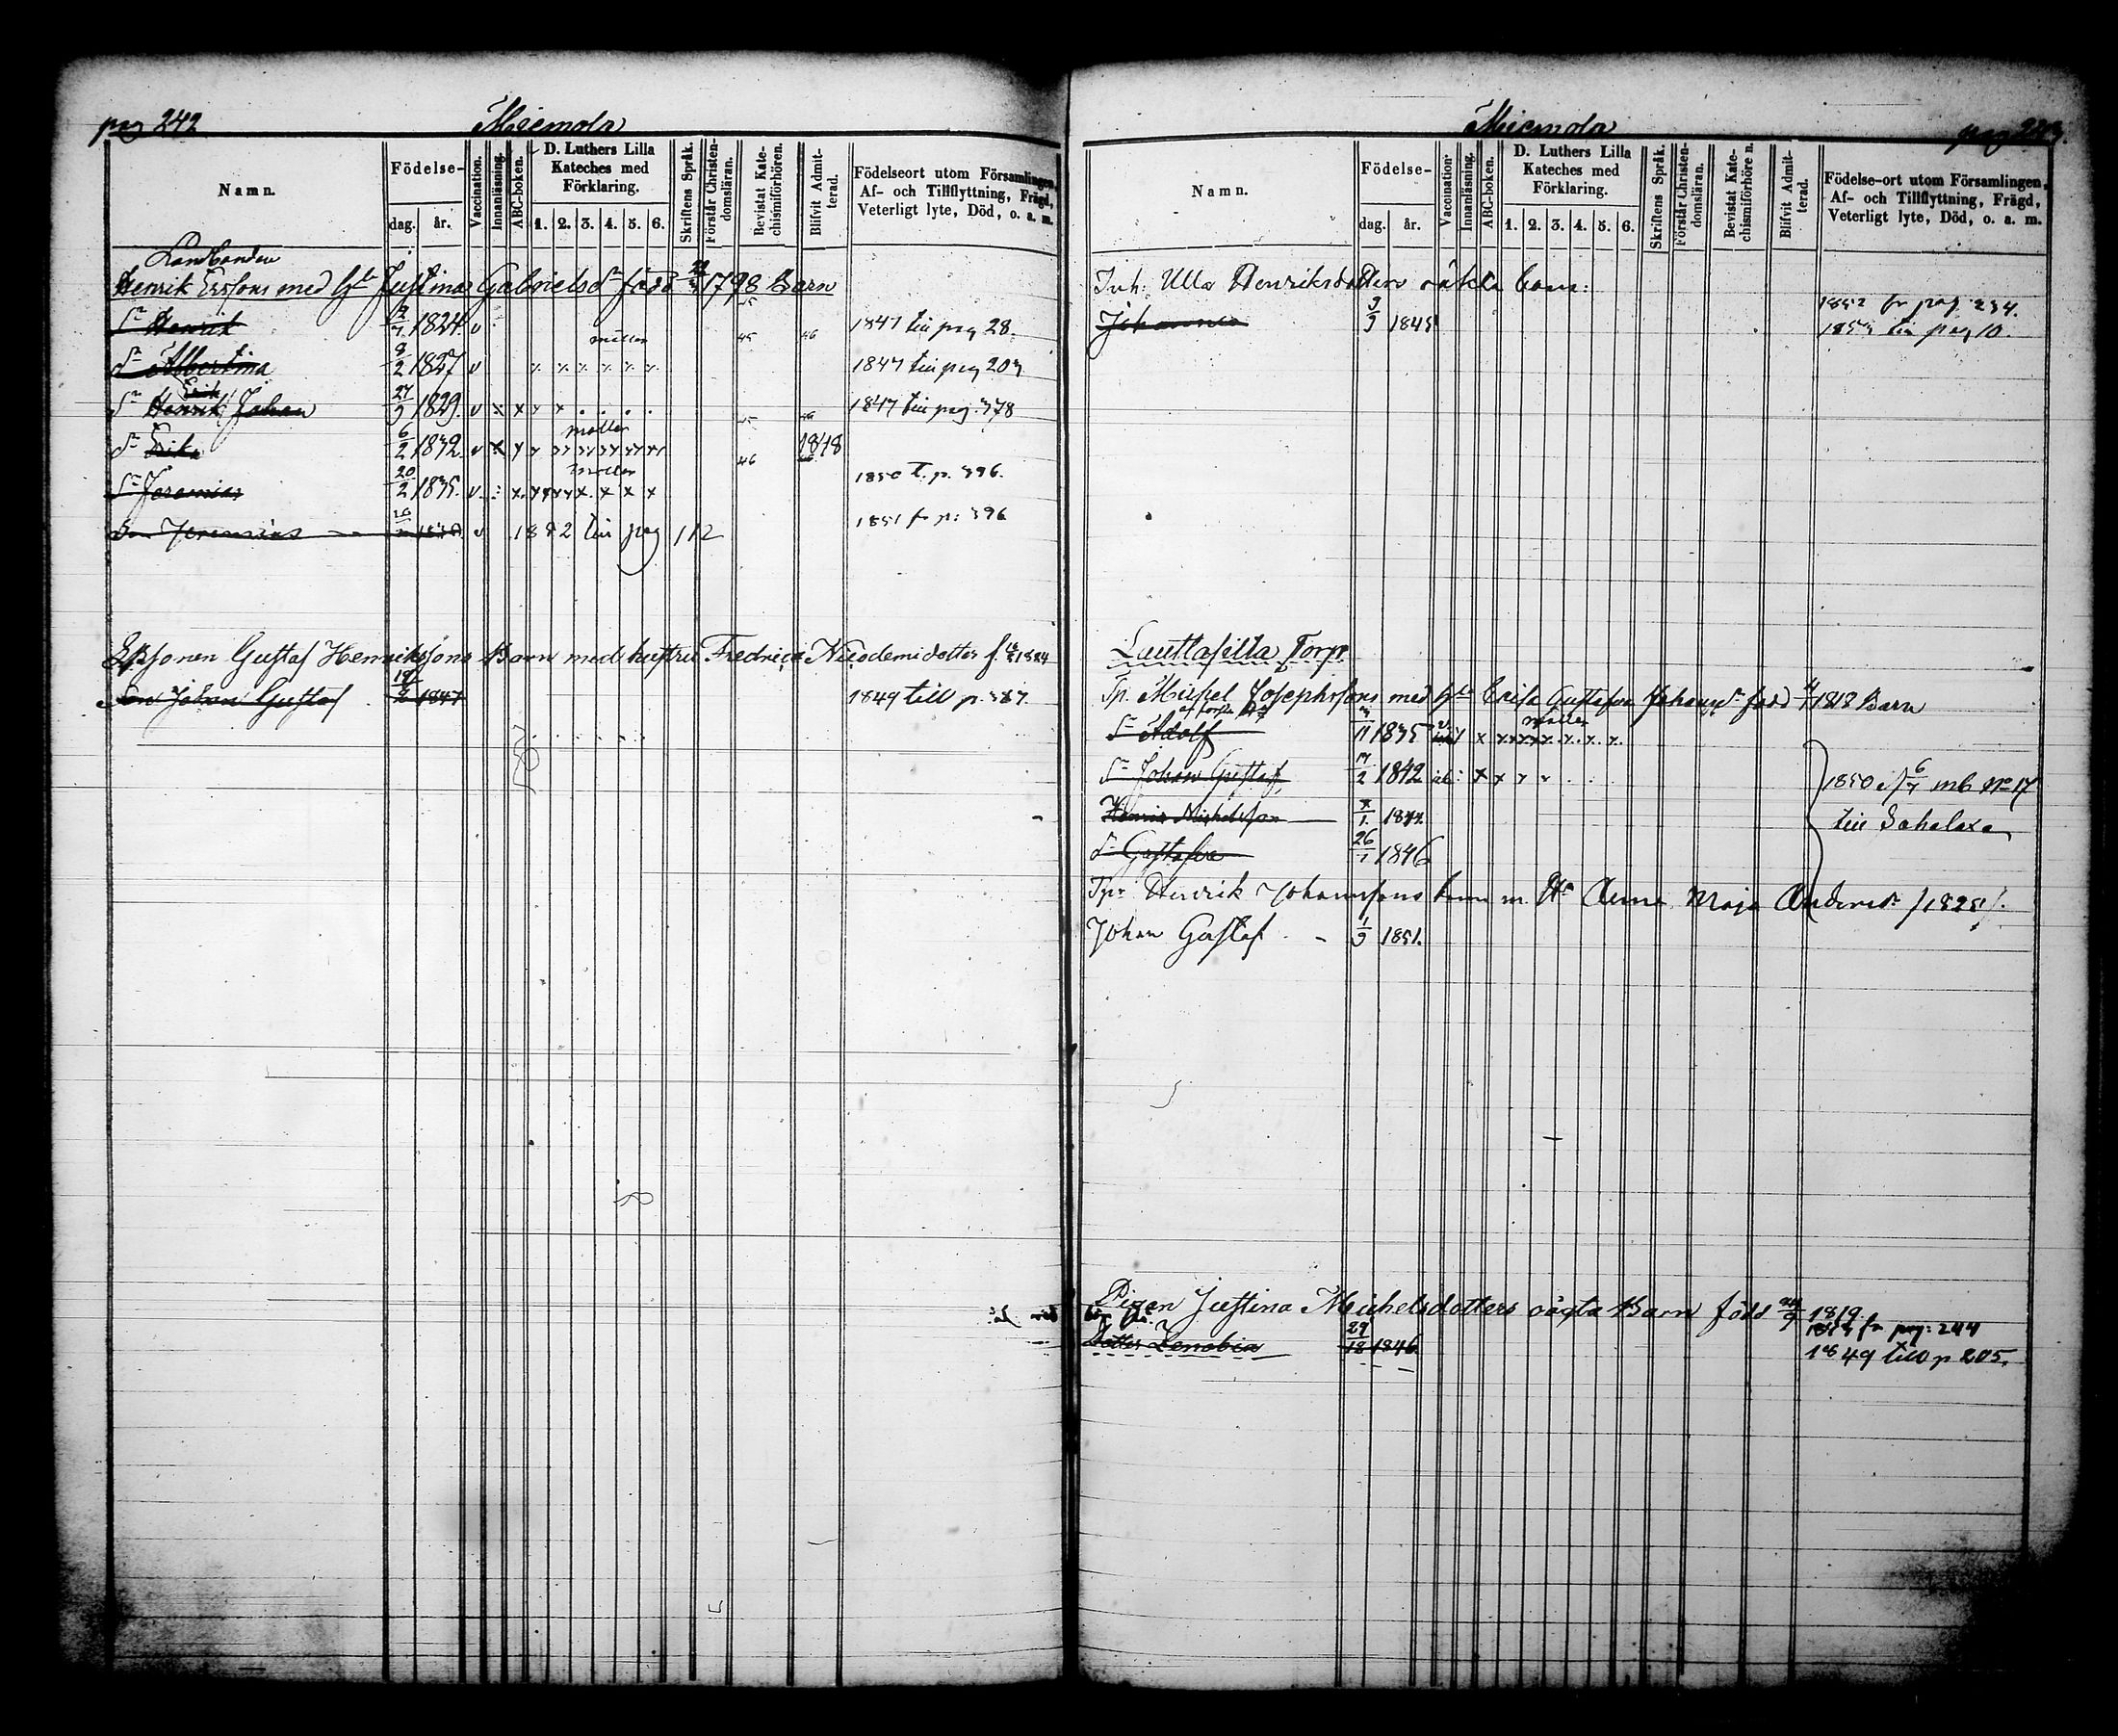 pag 242
Miemola
Namn.
Födelse-
dag.
år.
Vaccination.
Innanläsning.
ABC-boken.
D. Luthers Lilla
Kateches med
Förklaring.
1. 2. 3. 4. 5. 6.
Skriftens Språk.
Förstår Christen-
domsläran.
Bevistat Kate-
chismiförhören.
Blifvit Admit-
terad.
Födelseort utom Församlingen,
Af- och Tillflyttning, Frägd,
Veterligt lyte, Död, o. a. m.
Landbonden
Henrik Erssons med hu Justina Gabrielsdr född 1798 Barn
Sn Henrik 1824 v 1847 till pag 28.
dr Albertina 8/2 1827 v 1847 till pag 207
Sn Henrik Erik Johan 27/9 1829. v x x x x . . . . 1847 till pag. 378
dr Erika 6/2 1832 v x 1848
Sn Jeremias 20/2 1835. v 1850 t. p. 396.
Son Jeremias v 1852 till pag 112 1851 fr p: 396
Gustaf Henrikssons Barn med hustru Fredrica Nicodemidotter f. 1824
Son Johan Gustaf 1847 1849 till p. 387.
Miemola
Namn.
Födelse-
dag.
år.
Vaccination.
Innanläsning.
ABC-boken.
D. Luthers Lilla
Kateches med
Förklaring.
1. 2. 3. 4. 5. 6.
Skriftens Språk.
Förstår Christen-
domsläran.
Bevistat Kate-
chismiförhören.
Blifvit Admit-
terad.
Födelse-ort utom Församlingen,
Af- och Tillflyttning, Frägd,
Veterligt lyte, Död, o. a. m.
Inh: Ulla Henriksdotters oäkta barn:
1852 fr pag: 234.
Johannes 1845 till pag 10.
Lauttasilta Torp
Tp. Michel Josephssons med hu Erica Gustafva Johansdr född 1818 Barn
Sn Adolf 1835
Sn Johan Gustaf 1842
1850 6/7 mb No 17
Michelsson
till Sahalax
dr Gustafva 26 1846
Tpr Henrik Johanssons barn m. Hu Anna Maja Andersdr
Johan Gustaf 1/9 1851.
Pigan Justina Michelsdotters oägta Barn född 1819
fr pag: 244
Dotter Zenobia 29/12 1846 1849 till p 205.